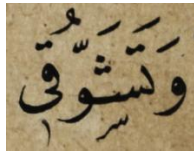 وَتَشَوُّقِى